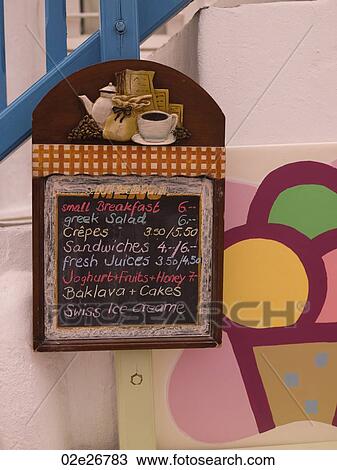 MENU
small Breakfast 6.--
greek Salad 6.--
Crêpes 3.50/5.50
Sandwiches 4.-/6.-
fresh Juices 3.50/4,50
Joghurt+Fruits+Honey 7.-
Baklava + Cakes
Swiss Ice-Creame
FOTOSEARCH
02e26783 www.fotosearch.com